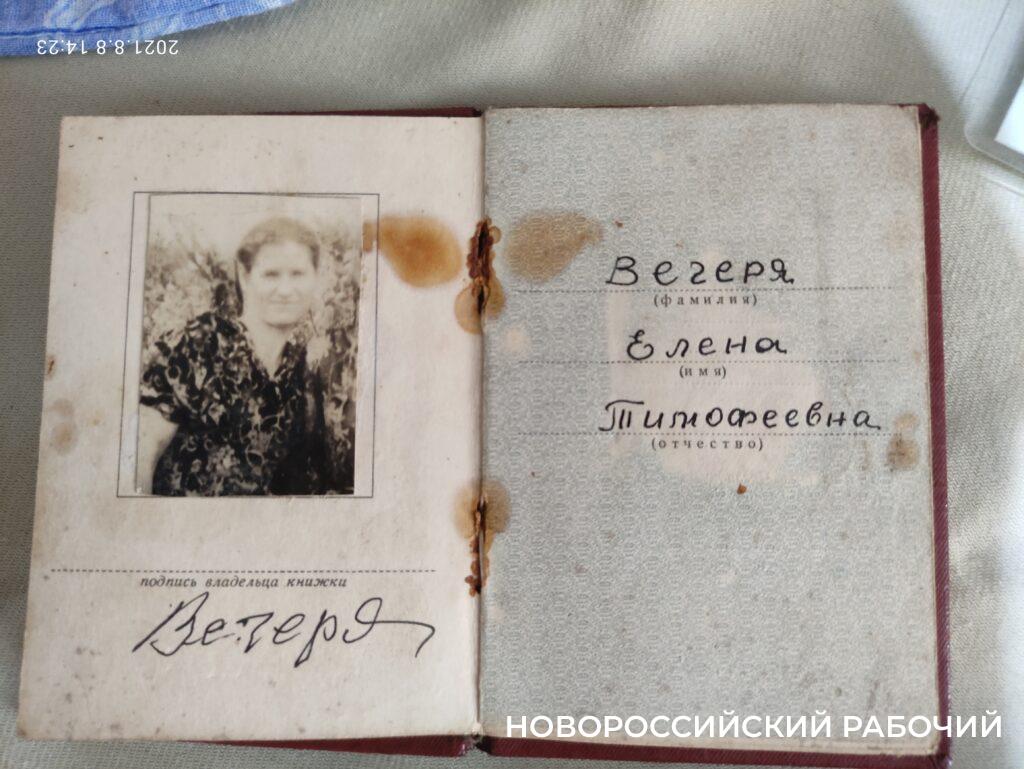 2021.8.8 14:23
подпись владельца книжки
Вечеря
Вечеря
(фамилия)
Елена
(имя)
Тимофеевна
(отчество)
НОВОРОССИЙСКИЙ РАБОЧИЙ